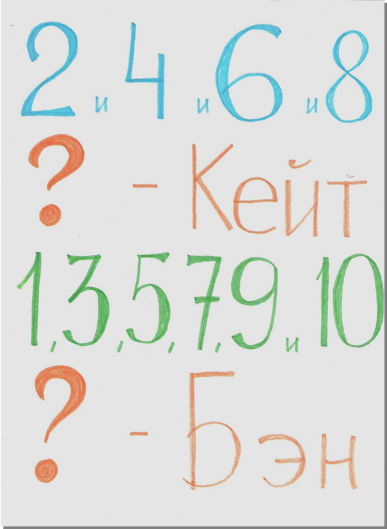 2 и 4 и 6 и 8
? - Кейт
1, 3, 5, 7, 9 и 10
? - Бэн